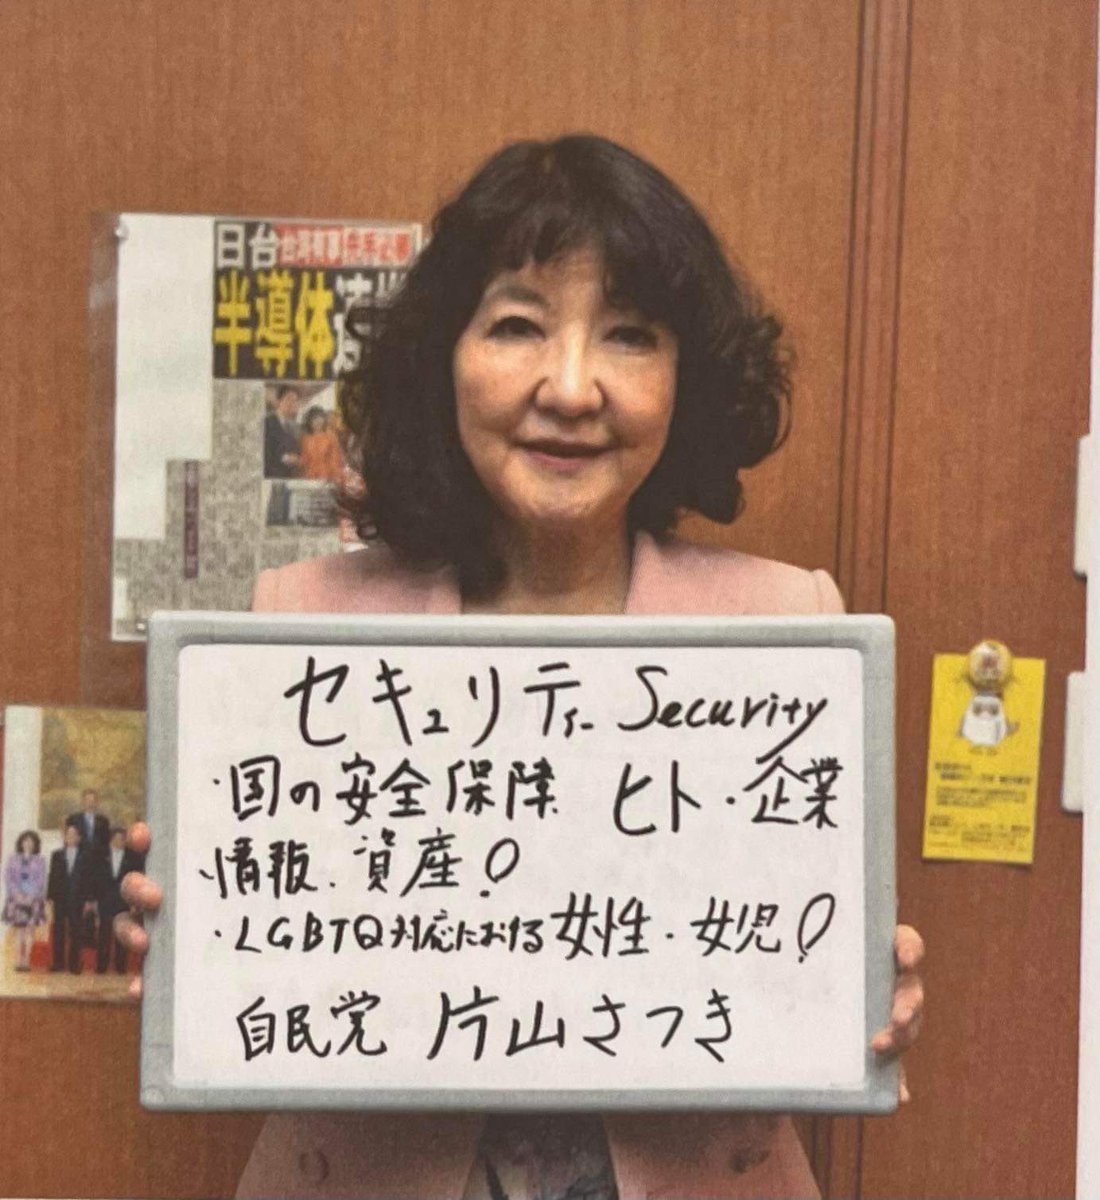 日台
半導体
セキュリティー Security
・国の安全保障 ヒト・企業
情報、資産!
・LGBTQ対応における女性・女児!
自民党 片山さつき